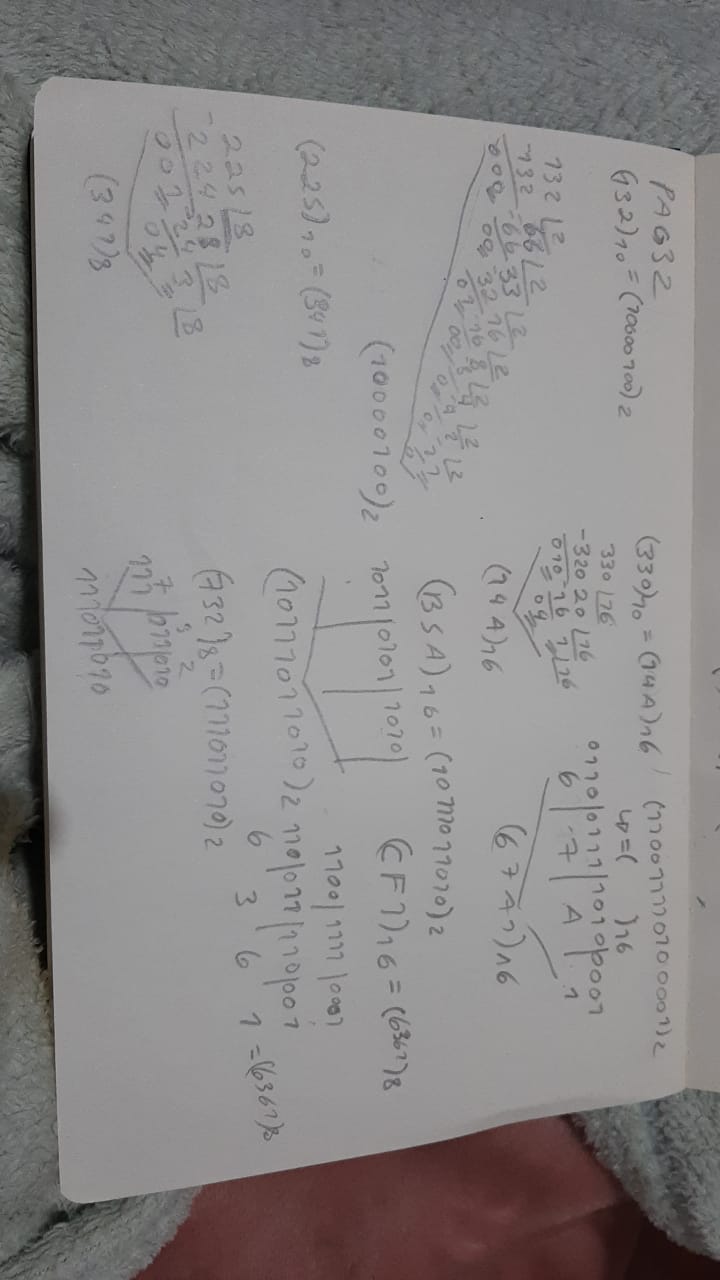 PAG32
(132)10 = (10000100)2
132 |2
-132 66 |2
000 -66 33 |2
00 32 16 |2
01 -16 8 |2
00 8 4 |2
(10000100)2
(225)10 = (341)8
225 |8
-224 28 |8
001 -24 3 |8
04
(341)8
(330)10 = (14A)16
330 |16
-320 20 |16
010 -16 1 |16
04
(14A)16
(B5A)16 = (101101011010)2
1011|0101|1010|
(732)8 = (111011010)2
7 3 2
111|011|010
111011010
(110011110100001)2
= ( )16
0110|0111|1010|0001
6 | 7 | A | 1
(67A1)16
(CF1)16 = (6361)8
1100|1111|0001
110|011|110|001
6 3 6 1 = (6361)8